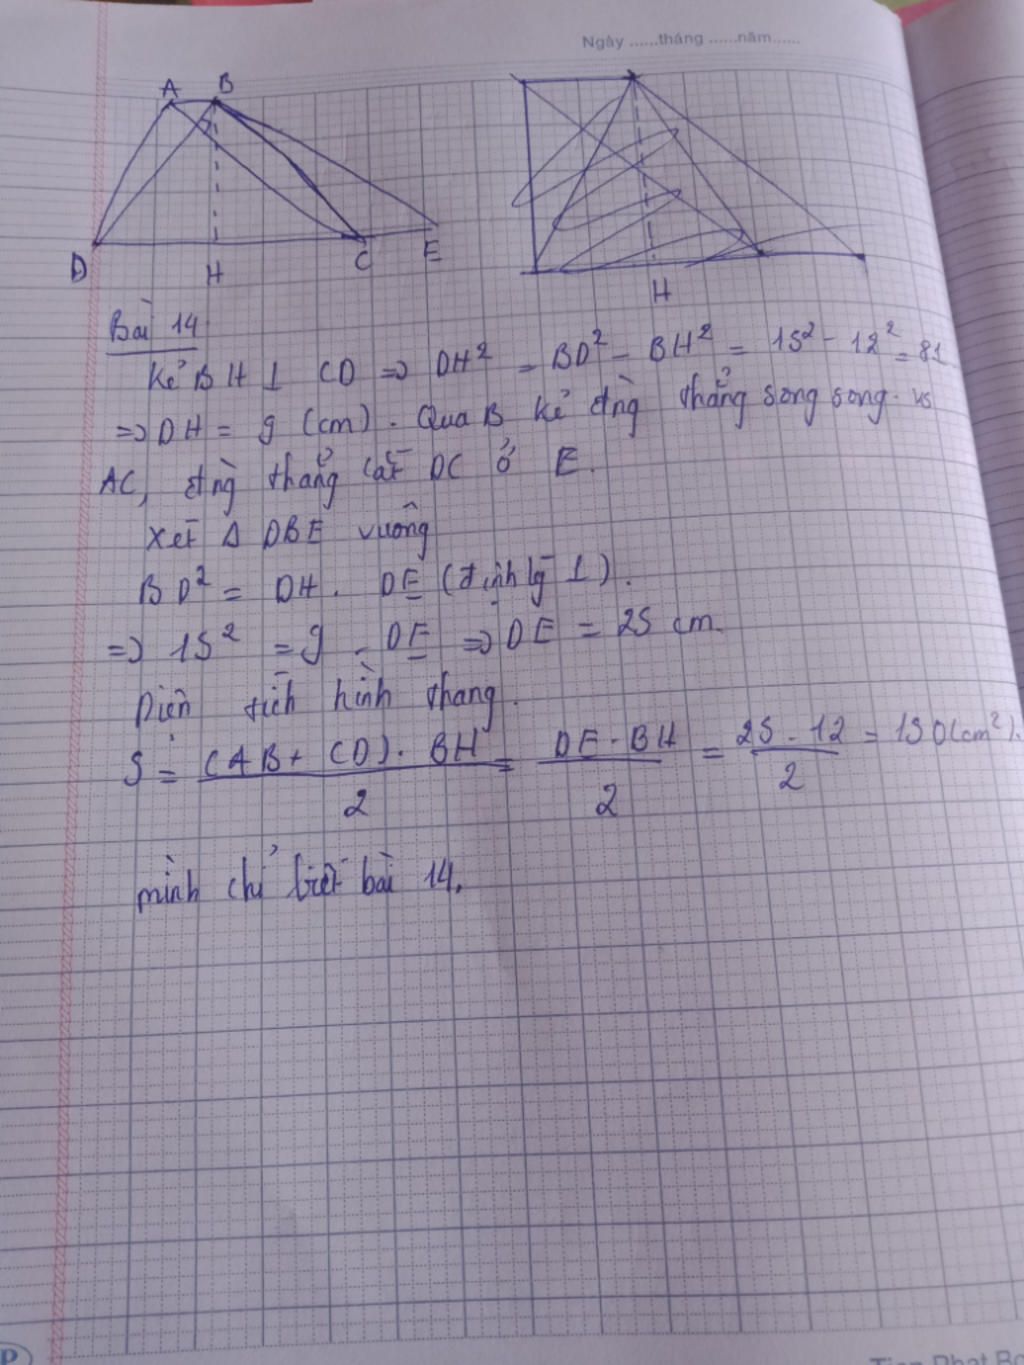 Ngày ......tháng ......năm......
A B
D H C E
H
Bài 14
Kẻ BH ⊥ CD => DH² = BD² - BH² = 15² - 12² = 81
=> DH = 9 (cm). Qua B kẻ đng thẳng song song vs
AC, đng thẳng cắt DC ở E.
Xét Δ DBE vuông
BD² = DH . DE (định lý 1).
=> 15² = 9 . DE => DE = 25 cm
Diện tích hình thang.
S = (AB + CD) . BH / 2 = DE . BH / 2 = 25 . 12 / 2 = 150 (cm²).
mình chỉ biết bài 14.
P